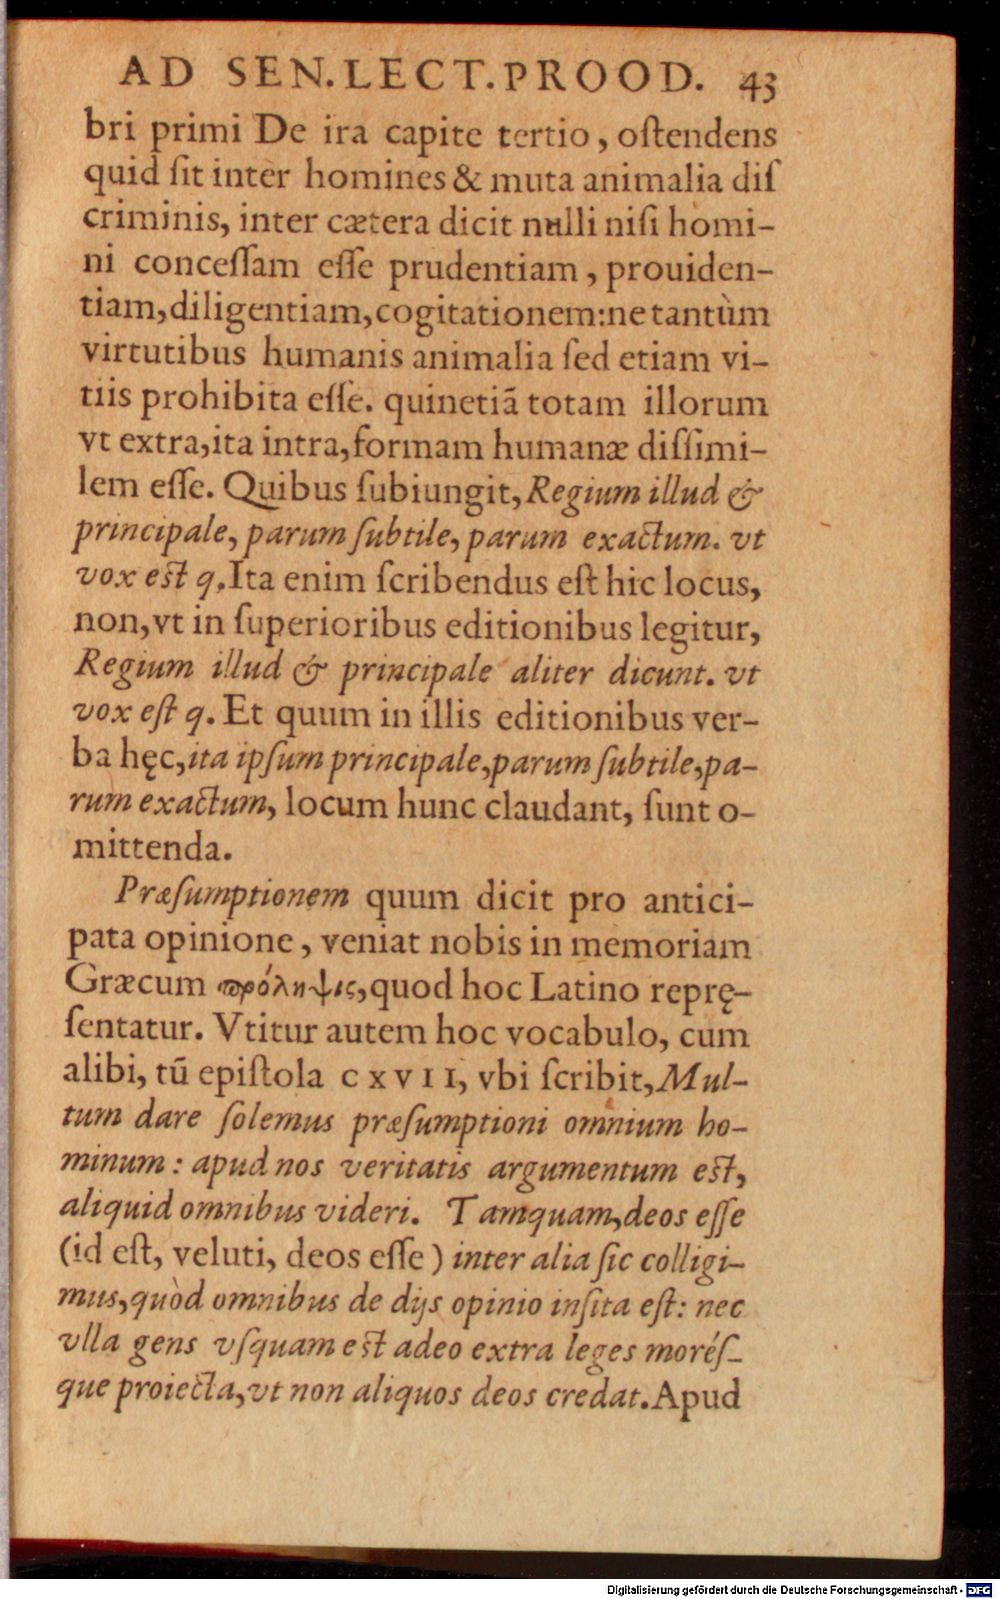 AD SEN. LECT. PROOD. 43
bri primi De ira capite tertio, oſtendens
quid ſit inter homines & muta animalia diſ
criminis, inter cætera dicit nulli niſi homi-
ni conceſſam eſſe prudentiam, prouiden-
tiam, diligentiam, cogitationem: ne tantùm
virtutibus humanis animalia ſed etiam vi-
tiis prohibita eſſe. quinetiã totam illorum
vt extra, ita intra, formam humanæ diſſimi-
lem eſſe. Quibus ſubiungit, Regium illud &
principale, parum ſubtile, parum exactum. vt
vox eſt q. Ita enim ſcribendus eſt hic locus,
non, vt in ſuperioribus editionibus legitur,
Regium illud & principale aliter dicunt. vt
vox eſt q. Et quum in illis editionibus ver-
ba hęc, ita ipſum principale, parum ſubtile, pa-
rum exactum, locum hunc claudant, ſunt o-
mittenda.
Præſumptionem quum dicit pro antici-
pata opinione, veniat nobis in memoriam
Græcum πρόληψις, quod hoc Latino reprę-
ſentatur. Vtitur autem hoc vocabulo, cum
alibi, tū epiſtola CXVII, vbi ſcribit, Mul-
tum dare ſolemus præſumptioni omnium ho-
minum: apud nos veritatis argumentum eſt,
aliquid omnibus videri. Tamquam, deos eſſe
(id eſt, veluti, deos eſſe) inter alia ſic colligi-
mus, quòd omnibus de dijs opinio inſita eſt: nec
vlla gens vſquam eſt adeo extra leges moréſ-
que proiecta, vt non aliquos deos credat. Apud
Digitalisierung gefördert durch die Deutsche Forschungsgemeinschaft - DFG